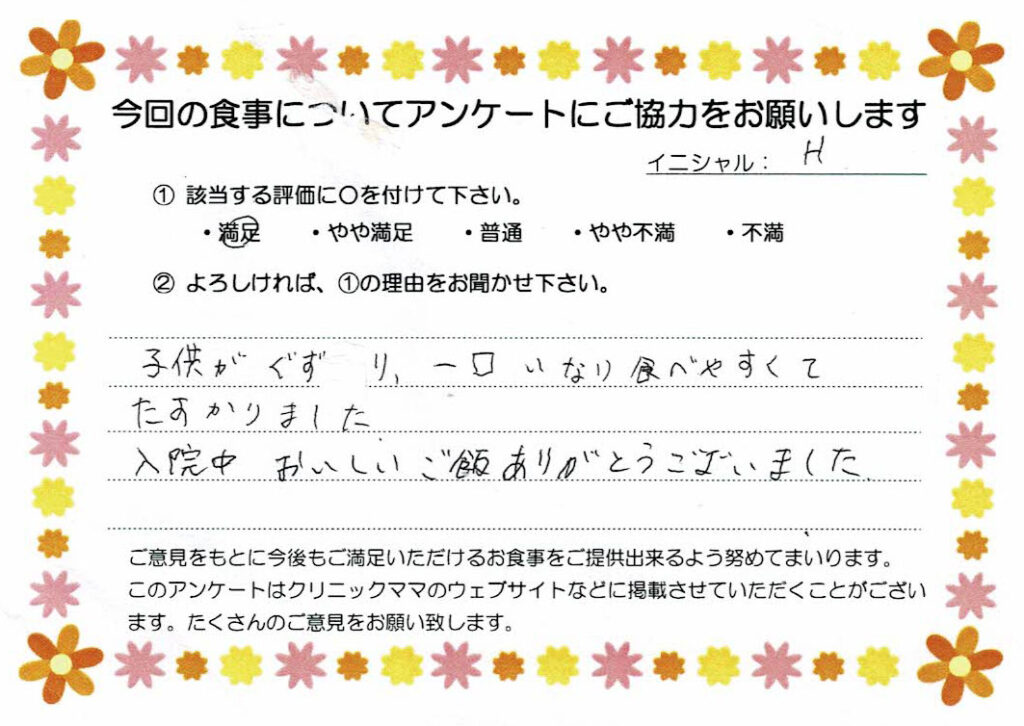 今回の食事についてアンケートにご協力をお願いします
イニシャル： H
① 該当する評価に〇を付けて下さい。
・満足 ・やや満足 ・普通 ・やや不満 ・不満
② よろしければ、①の理由をお聞かせ下さい。
子供がぐず り、一口いなり食べやすくて
たすかりました
入院中 おいしいご飯ありがとうございました。
ご意見をもとに今後もご満足いただけるお食事をご提供出来るよう努めてまいります。
このアンケートはクリニックママのウェブサイトなどに掲載させていただくことがござい
ます。たくさんのご意見をお願い致します。